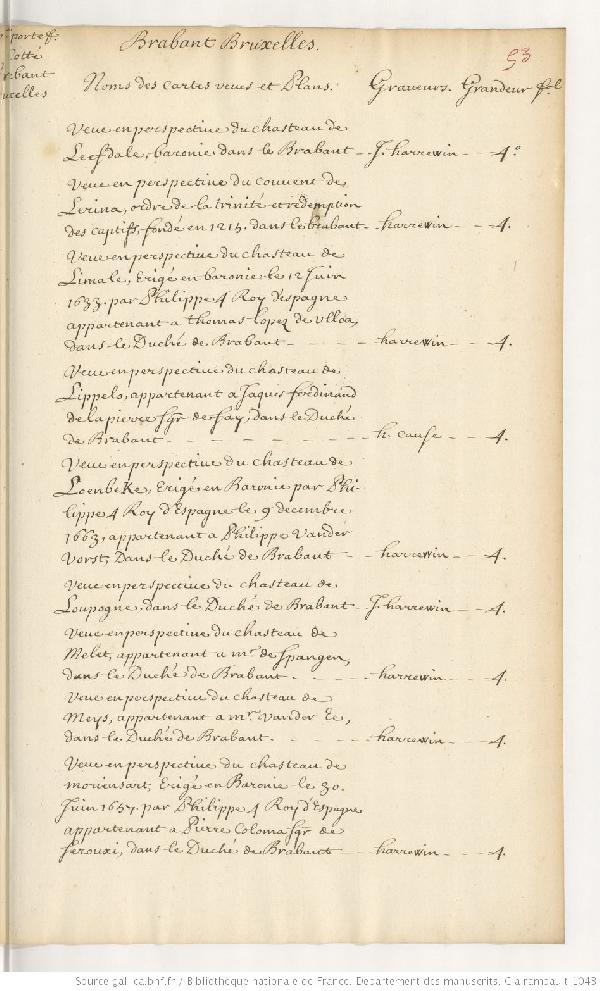 portef.
Cotté
rabant
uxelles
Brabant Bruxelles.
53
Noms des cartes veues et Plans. Graveurs. Grandeur fol
Veue en perspective du chasteau de
Leefdale, baronie dans le Brabant - J. harrewin - - 4.º
Veue en perspective du couvent de
Lerina, ordre de la trinité et redemption
des captifs, fondé en 1215. dans le brabant - harrewin - - 4.
Veue en perspective du chasteau de
Limale, Erigé en baronie le 12 Juin
1633. par Philippe 4 Roy d'espagne
appartenant a thomas lopez de ulloa,
dans le Duché de Brabant - - - - harrewin - - 4.
Veue en perspective du chasteau de
Lippelo, appartenant a Jaques ferdinand
de la pierre Sgr. de fay, dans le Duché
de Brabant - - - - - - - h. cause - - 4.
Veue en perspective du chasteau de
Loenbeke, Erigé en Baronie par Phi-
lippe 4 Roy d'Espagne le 9 decembre
1663, appartenant a Philippe Vander
Vorst, Dans le Duché de Brabant - - harrewin - - 4.
Veue en perspective du chasteau de
Loupogne, dans le Duché de Brabant - J. harrewin - - 4.
Veue en perspective du chasteau de
Melet, appartenant a mr. de Spangen,
dans le Duché de Brabant. - - - harrewin - - 4.
Veue en perspective du chasteau de
Meys, appartenant a mr. Vander Ee,
dans le Duché de Brabant. - - - harrewin - - 4.
Veue en perspective du chasteau de
moriensart, Erigé en Baronie le 30.
Juin 1657. par Philippe 4 Roy d'Espagne
appartenant a Pierre Coloma Sgr. de
Serouxi, dans le Duché de Brabant - - harrewin - - - 4.
Source gallica.bnf.fr / Bibliothèque nationale de France. Département des manuscrits. Clairambault 1048